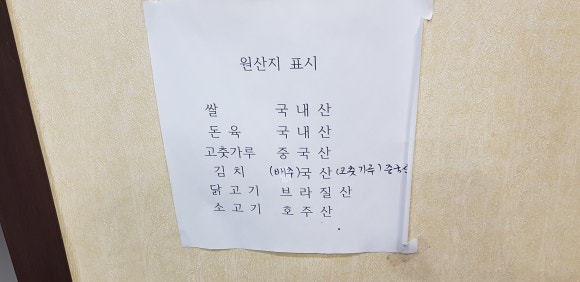 원산지 표시
쌀 국내산
돈육 국내산
고춧가루 중국산
김치 (배추)국산(고춧가루)중국산
닭고기 브라질산
소고기 호주산